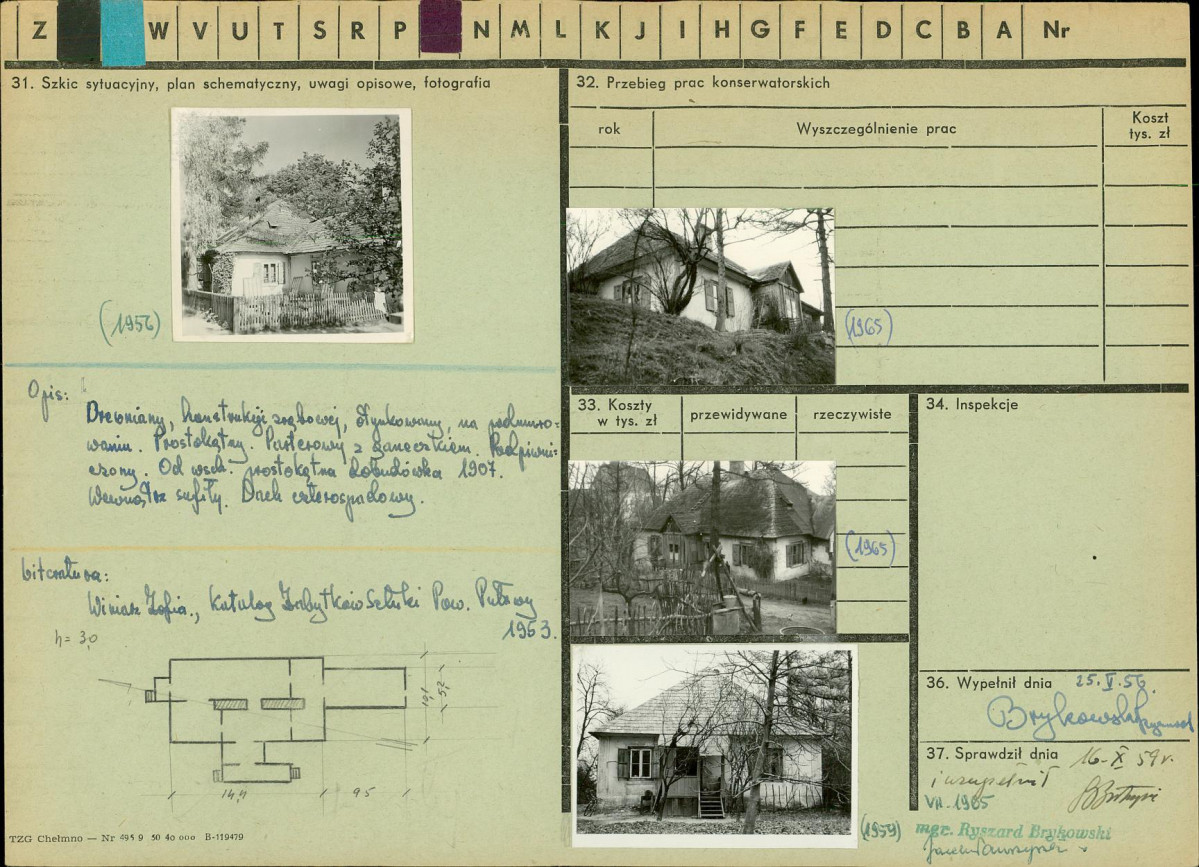 Z W V U T S R P N M L K J I H G F E D C B A Nr
31. Szkic sytuacyjny, plan schematyczny, uwagi opisowe, fotografia
(1956)
Opis:
Drewniany, konstrukcji zrębowej, otynkowany, na podmuro-
waniu. Prostokątny. Parterowy z ganeczkiem. Podpiwni-
czony. Od wsch. prostokątna dobudówka 1907.
Wewnątrz sufity. Dach czterospadowy.
Literatura:
Winiarz Zofia., Katalog Zabytków Sztuki Pow. Puławy
1953.
h = 3,0
5,2
14,4
9,5
TZG Chełmno — Nr 495 9 50 40 000 B-119479
32. Przebieg prac konserwatorskich
rok
Wyszczególnienie prac
Koszt
tys. zł
(1965)
33. Koszty
w tys. zł
przewidywane
rzeczywiste
(1965)
(1959)
34. Inspekcje
36. Wypełnił dnia 25.V.56.
37. Sprawdził dnia 16-X 59 r.
i uzupełnił
VII. 1965
mgr. Ryszard Brykowski